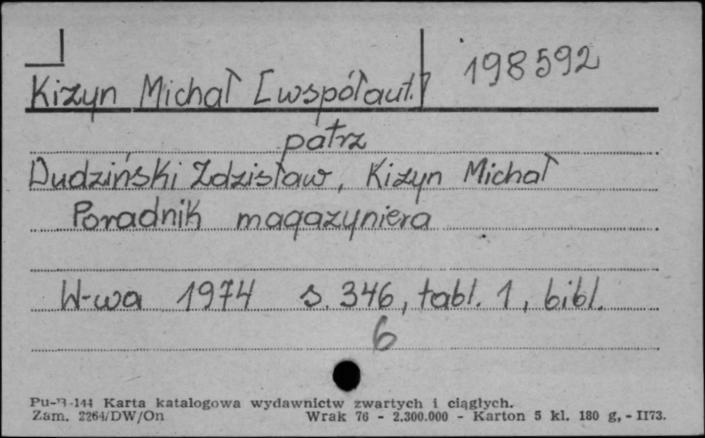 198592
Kizyn Michał [współaut.]
patrz
Dudziński Zdzisław, Kizyn Michał
Poradnik magazyniera
W-wa 1974 s. 346, tabl. 1, bibl.
6
Pu-B-144 Karta katalogowa wydawnictw zwartych i ciągłych.
Zam. 2264/DW/On Wrak 76 - 2.300.000 - Karton 5 kl. 180 g, - II73.